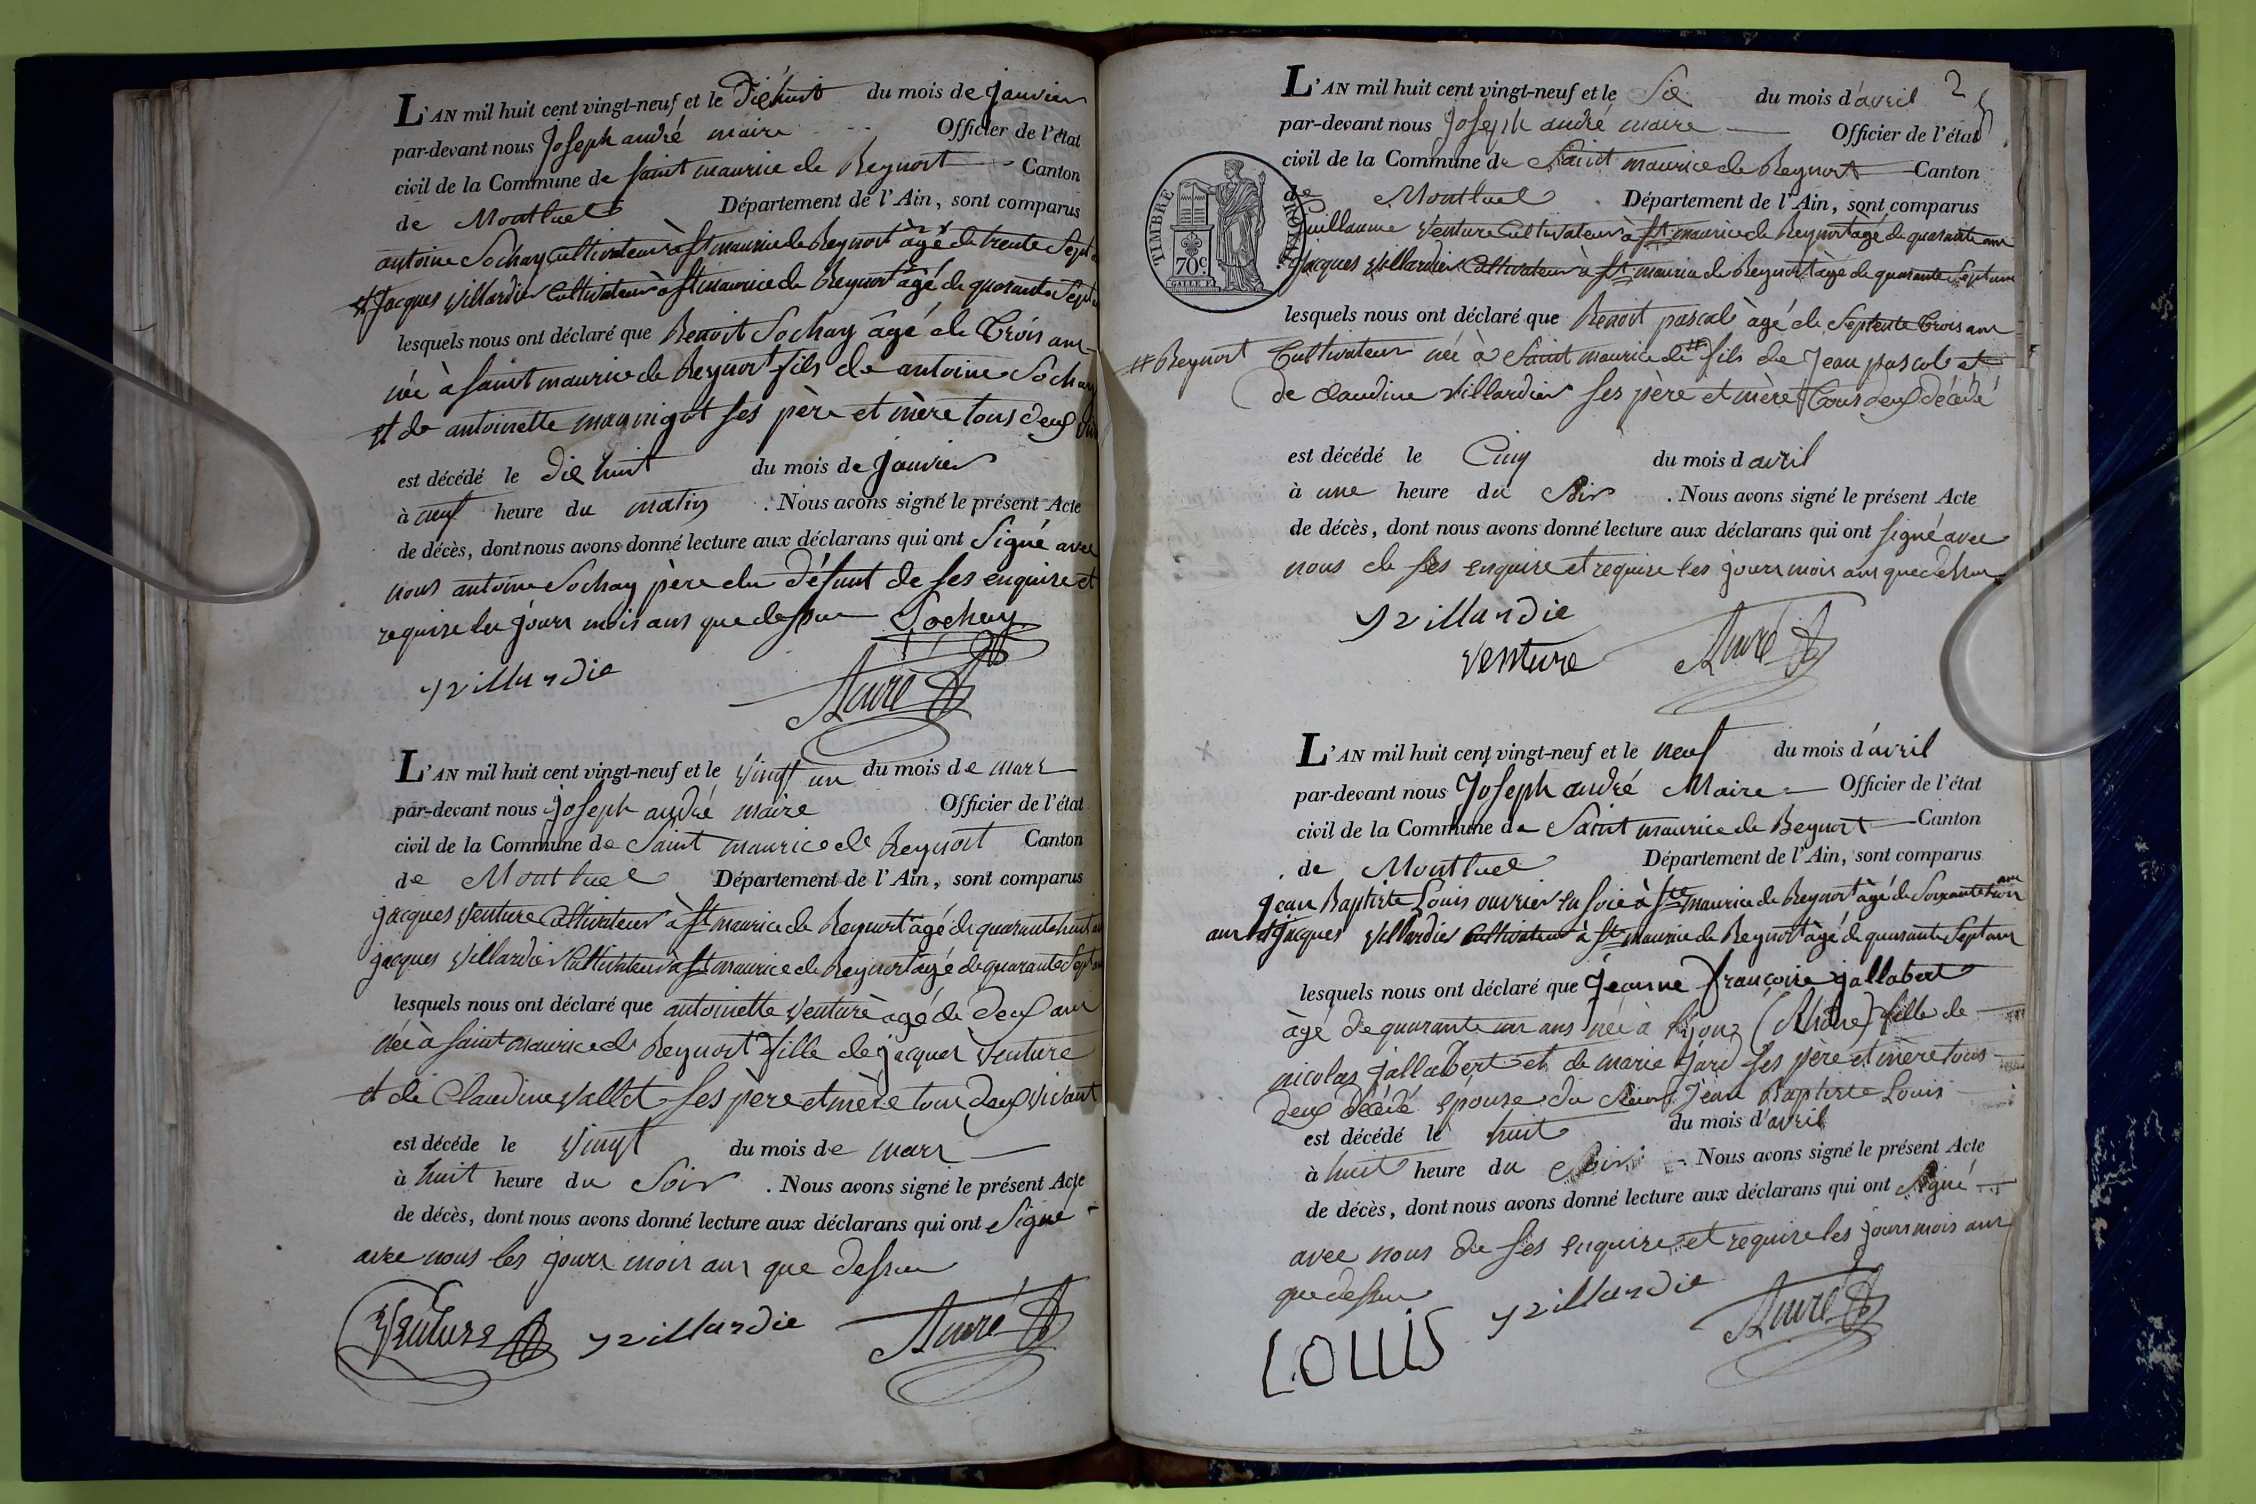 L'AN mil huit cent vingt-neuf et le dixhuit du mois de janvier
par-devant nous Joseph andré maire Officier de l'état
civil de la Commune de saint maurice de Beynost Canton
de Montluel Département de l'Ain, sont comparus
antoine Sochay Cultivateur à st maurice de Beynost âgé de trente Sept
et Jacques Villardier Cultivateur à st maurice de Beynost âgé de quarante Sept
lesquels nous ont déclaré que Benoit Sochay âgé de Trois ans
née à saint maurice de Beynost fils de antoine Sochay
et de antoinette magnigot ses père et mère tous deux
est décédé le dix huit du mois de janvier
à neuf heure du matin . Nous avons signé le présent Acte
de décès, dont nous avons donné lecture aux déclarans qui ont Signé avec
nous antoine Sochay père du défunt de ses enquire et
require les jours mois ans que dessus Sochay
villardie
André
L'AN mil huit cent vingt-neuf et le vingt un du mois de mars
par-devant nous joseph andré maire Officier de l'état
civil de la Commune de Saint maurice de Beynost Canton
de Montluel Département de l'Ain, sont comparus
jacques Venture Cultivateur à st maurice de Beynost âgé de quarante huit
jacques Villardier Cultivateur à st maurice de Beynost âgé de quarante Sept
lesquels nous ont déclaré que antoinette Venture âgé de deux ans
née à saint maurice de Beynost fille de jacques Venture
et de Claudine Vallet ses père et mère tous deux vivant
est décéde le vingt du mois de mars
à huit heure du Soir . Nous avons signé le présent Acte
de décès, dont nous avons donné lecture aux déclarans qui ont Signé
avec nous les jours mois ans que dessus
Venture villardie André
2
L'AN mil huit cent vingt-neuf et le Six du mois d'avril
par-devant nous Joseph andré maire Officier de l'état
civil de la Commune de Saint maurice de Beynost Canton
de Montluel Département de l'Ain, sont comparus
Guillaume Venture Cultivateur à st maurice de Beynost âgé de quarante ans
Jacques Villardier Cultivateur à st maurice de Beynost âgé de quarante Sept ans
TIMBRE ROYAL
70c
lesquels nous ont déclaré que Benoit pascal âgé de Septente Trois ans
# Beynost Cultivateur née à Saint maurice de # fils de Jean pascal et
de claudine Villardier ses père et mère Tous deux décédé
est décédé le Cinq du mois d avril
à une heure du Soir . Nous avons signé le présent Acte
de décès, dont nous avons donné lecture aux déclarans qui ont signé avec
nous de ses enquire et require les jours mois ans que dessus
villardie
venture André
L'AN mil huit cent vingt-neuf et le neuf du mois d'avril
par-devant nous Joseph andré Maire Officier de l'état
civil de la Commune de Saint maurice de Beynost Canton
de Montluel Département de l'Ain, sont comparus
Jean Baptiste Louis ouvrier en soie à st maurice de Beynost âgé de Soixante trois ans
ans et Jacques Villardier Cultivateur à st maurice de Beynost âgé de quarante Sept ans
lesquels nous ont déclaré que Jeanne françoise jallabert
âgé de quarante un ans née à Lyon (Rhône) fille de
nicolas jallabert et de marie jard ses père et mère tous
deux décédé épouse du Sieur Jean Baptiste Louis
est décédé le huit du mois d'avril
à huit heure du Soir . Nous avons signé le présent Acte
de décès, dont nous avons donné lecture aux déclarans qui ont Signé
avec nous de ses enquire et require les jours mois ans
que dessus villardie
LOUIS André